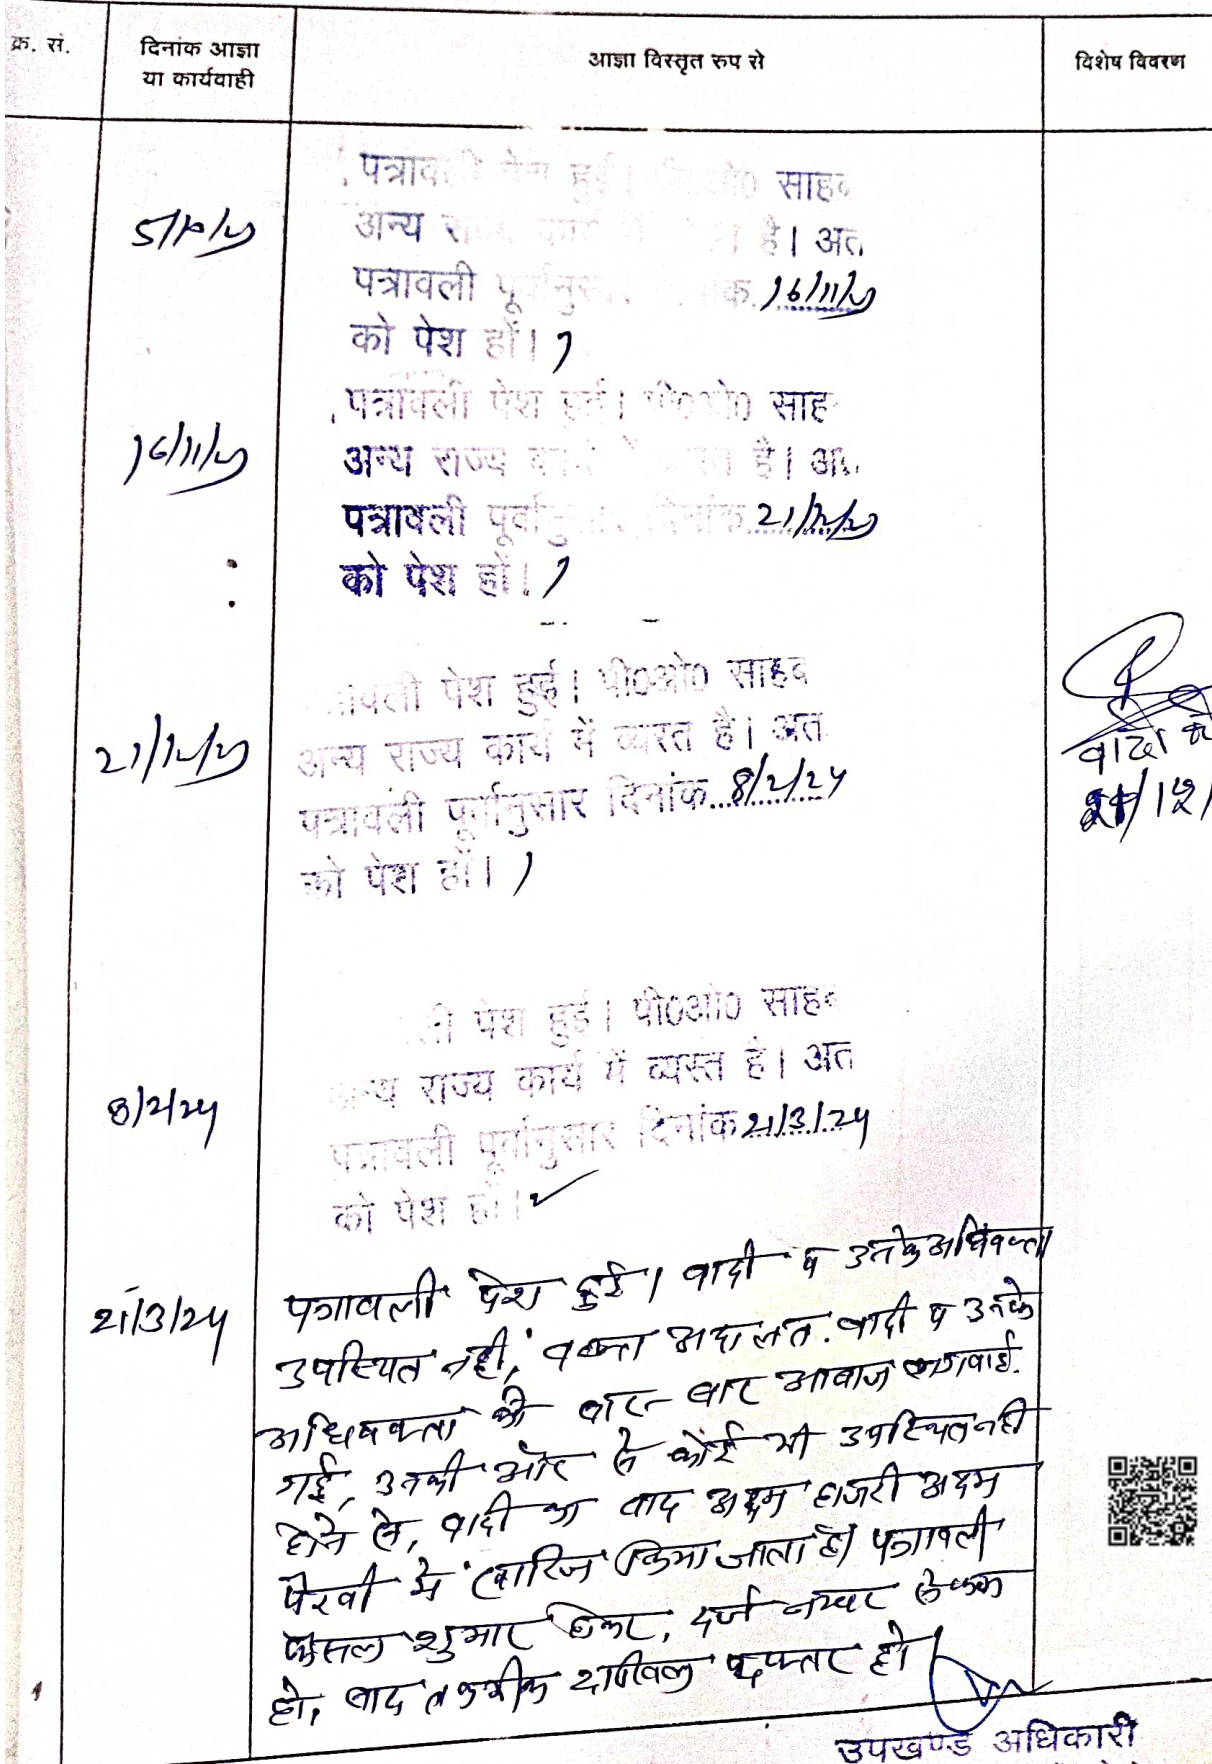 क्र. सं.
दिनांक आज्ञा
या कार्यवाही
आज्ञा विस्तृत रुप से
विशेष विवरण
पत्रावली पेश हुई। पी०ओ० साहब
अन्य राज्य कार्य में है। अत
पत्रावली पूर्वानुसार दिनांक 16/11/23
को पेश हों।
16/11/23
पत्रावली पेश हुई। पी०ओ० साह
अन्य राज्य कार्य में व्यस्त है। अत
पत्रावली पूर्वानुसार दिनांक 21/12/23
को पेश हों।
21/12/23
पेश हुई। पी०ओ० साहब
अन्य राज्य कार्य में व्यस्त है। अत
पत्रावली पूर्वानुसार दिनांक 8/2/24
को पेश हों।
वादी
21/12/
पेश हुई। पी०ओ० साहब
8/2/24
अन्य राज्य कार्य में व्यस्त है। अत
पत्रावली पूर्वानुसार दिनांक 21/3/24
को पेश हों।
21/3/24
पत्रावली पेश हुई। वादी व उनके अधिवक्ता
उपस्थित नहीं, वक्त अदालत. वादी व उनके
अधिवक्ता को बार-बार आवाज लगवाई.
गई, उनकी ओर से कोई भी उपस्थित नही
होने से, वादी का वाद अदम हाजरी अदम
पैरवी में खारिज किया जाता है। पत्रावली
फैसल शुमार होकर, दर्ज नम्बर से कम
हो, बाद तकमील दाखिल दफ्तर हो।
उपखण्ड अधिकारी